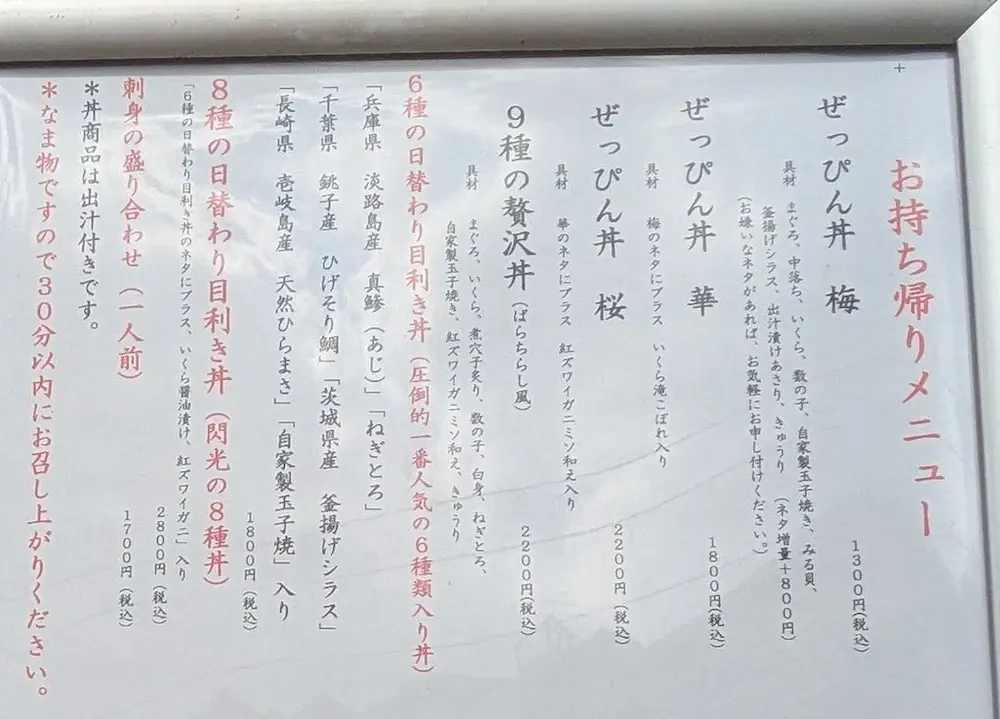 お持ち帰りメニュー
ぜっぴん丼 梅
1300円(税込)
具材 まぐろ、中落ち、いくら、数の子、自家製玉子焼き、みる貝、
釜揚げシラス、出汁漬けあさり、きゅうり (ネタ増量+800円)
(お嫌いなネタがあれば、お気軽にお申し付けください。)
ぜっぴん丼 華
1800円(税込)
具材 梅のネタにプラス いくら滝こぼれ入り
ぜっぴん丼 桜
2200円(税込)
具材 華のネタにプラス 紅ズワイガニミソ和え入り
9種の贅沢丼(ばらちらし風)
2200円(税込)
具材 まぐろ、いくら、煮穴子炙り、数の子、白身、ねぎとろ、
自家製玉子焼き、紅ズワイガニミソ和え、きゅうり
6種の日替わり目利き丼(圧倒的一番人気の6種類入り丼)
「兵庫県 淡路島産 真鯵(あじ)」「ねぎとろ」
「千葉県 銚子産 ひげそり鯛」「茨城県産 釜揚げシラス」
「長崎県 壱岐島産 天然ひらまさ」「自家製玉子焼」入り
1800円(税込)
8種の日替わり目利き丼(閃光の8種丼)
「6種の日替わり目利き丼のネタにプラス、いくら醤油漬け、紅ズワイガニ」入り
2800円(税込)
刺身の盛り合わせ(一人前)
1700円(税込)
*丼商品は出汁付きです。
*なま物ですので30分以内にお召し上がりください。